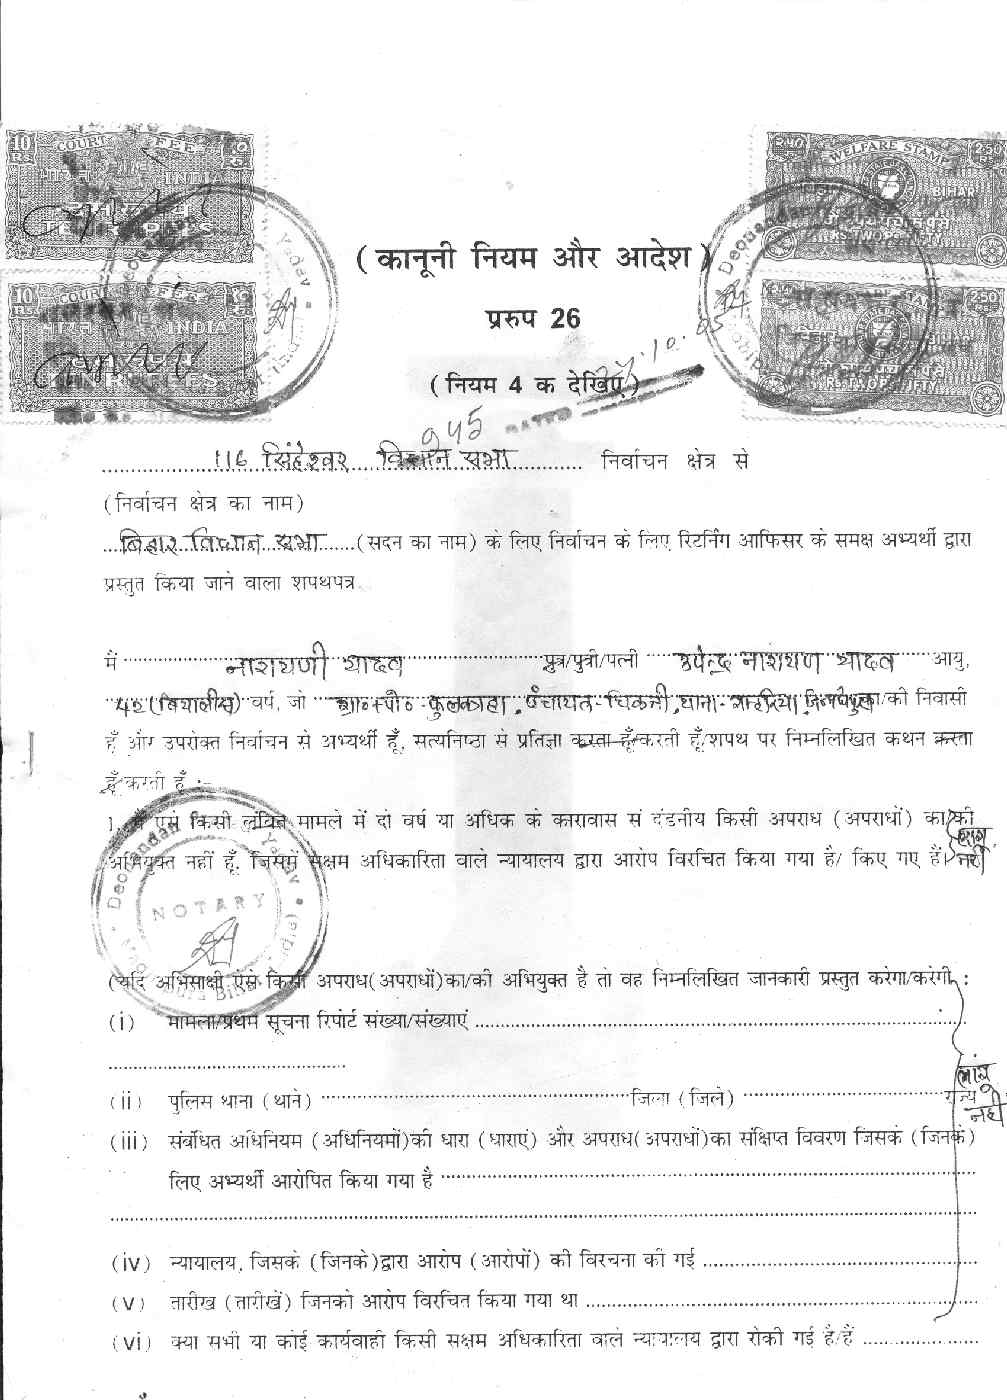 10 COURT FEE १०
RS रु
भारत INDIA
दस रुपये
TEN RUPEES
10 COURT FEE १०
RS रु
भारत INDIA
दस रुपये
TEN RUPEES
2.50 WELFARE STAMP 2.50
BIHAR
RS.TWO P.FIFTY
2.50 WELFARE STAMP 2.50
RS.TWO P.FIFTY
Yadav
Deonandan
( कानूनी नियम और आदेश )
प्ररुप 26
( नियम 4 क देखिए )
945 DATED
116 सिंहेश्वर विधान सभा निर्वाचन क्षेत्र से
(निर्वाचन क्षेत्र का नाम)
बिहार विधान सभा (सदन का नाम) के लिए निर्वाचन के लिए रिटर्निंग आफिसर के समक्ष अभ्यर्थी द्वारा
प्रस्तुत किया जाने वाला शपथपत्र
मैं नारायणी यादव पुत्र/पुत्री/पत्नी उपेन्द्र नारायण यादव आयु,
42 (बियालीस) वर्ष, जो ग्रा०+पो० फुलकाहा, पंचायत-चिकनी, थाना- का/की निवासी
हूँ और उपरोक्त निर्वाचन से अभ्यर्थी हूँ, सत्यनिष्ठा से प्रतिज्ञा करता हूँ/करती हूँ/शपथ पर निम्नलिखित कथन करता
हूँ/करती हूँ :-
1. मैं ऐसे किसी लंबित मामले में दो वर्ष या अधिक के कारावास से दंडनीय किसी अपराध (अपराधों) का/की
अभियुक्त नहीं हूँ, जिसमें सक्षम अधिकारिता वाले न्यायालय द्वारा आरोप विरचित किया गया है/ किए गए हैं। लागू नहीं
Deonandan Yadav
NOTARY
(यदि अभिसाक्षी ऐसे किसी अपराध(अपराधों)का/की अभियुक्त है तो वह निम्नलिखित जानकारी प्रस्तुत करेगा/करेगी :
(i) मामला/प्रथम सूचना रिपोर्ट संख्या/संख्याएं
लागू नहीं
(ii) पुलिस थाना (थाने) जिला (जिले) राज्य
(iii) संबंधित अधिनियम (अधिनियमों)की धारा (धाराएं) और अपराध(अपराधों)का संक्षिप्त विवरण जिसके (जिनके)
लिए अभ्यर्थी आरोपित किया गया है
(iv) न्यायालय, जिसके (जिनके)द्वारा आरोप (आरोपों) की विरचना की गई
(v) तारीख (तारीखें) जिनको आरोप विरचित किया गया था
(vi) क्या सभी या कोई कार्यवाही किसी सक्षम अधिकारिता वाले न्यायालय द्वारा रोकी गई है/हैं